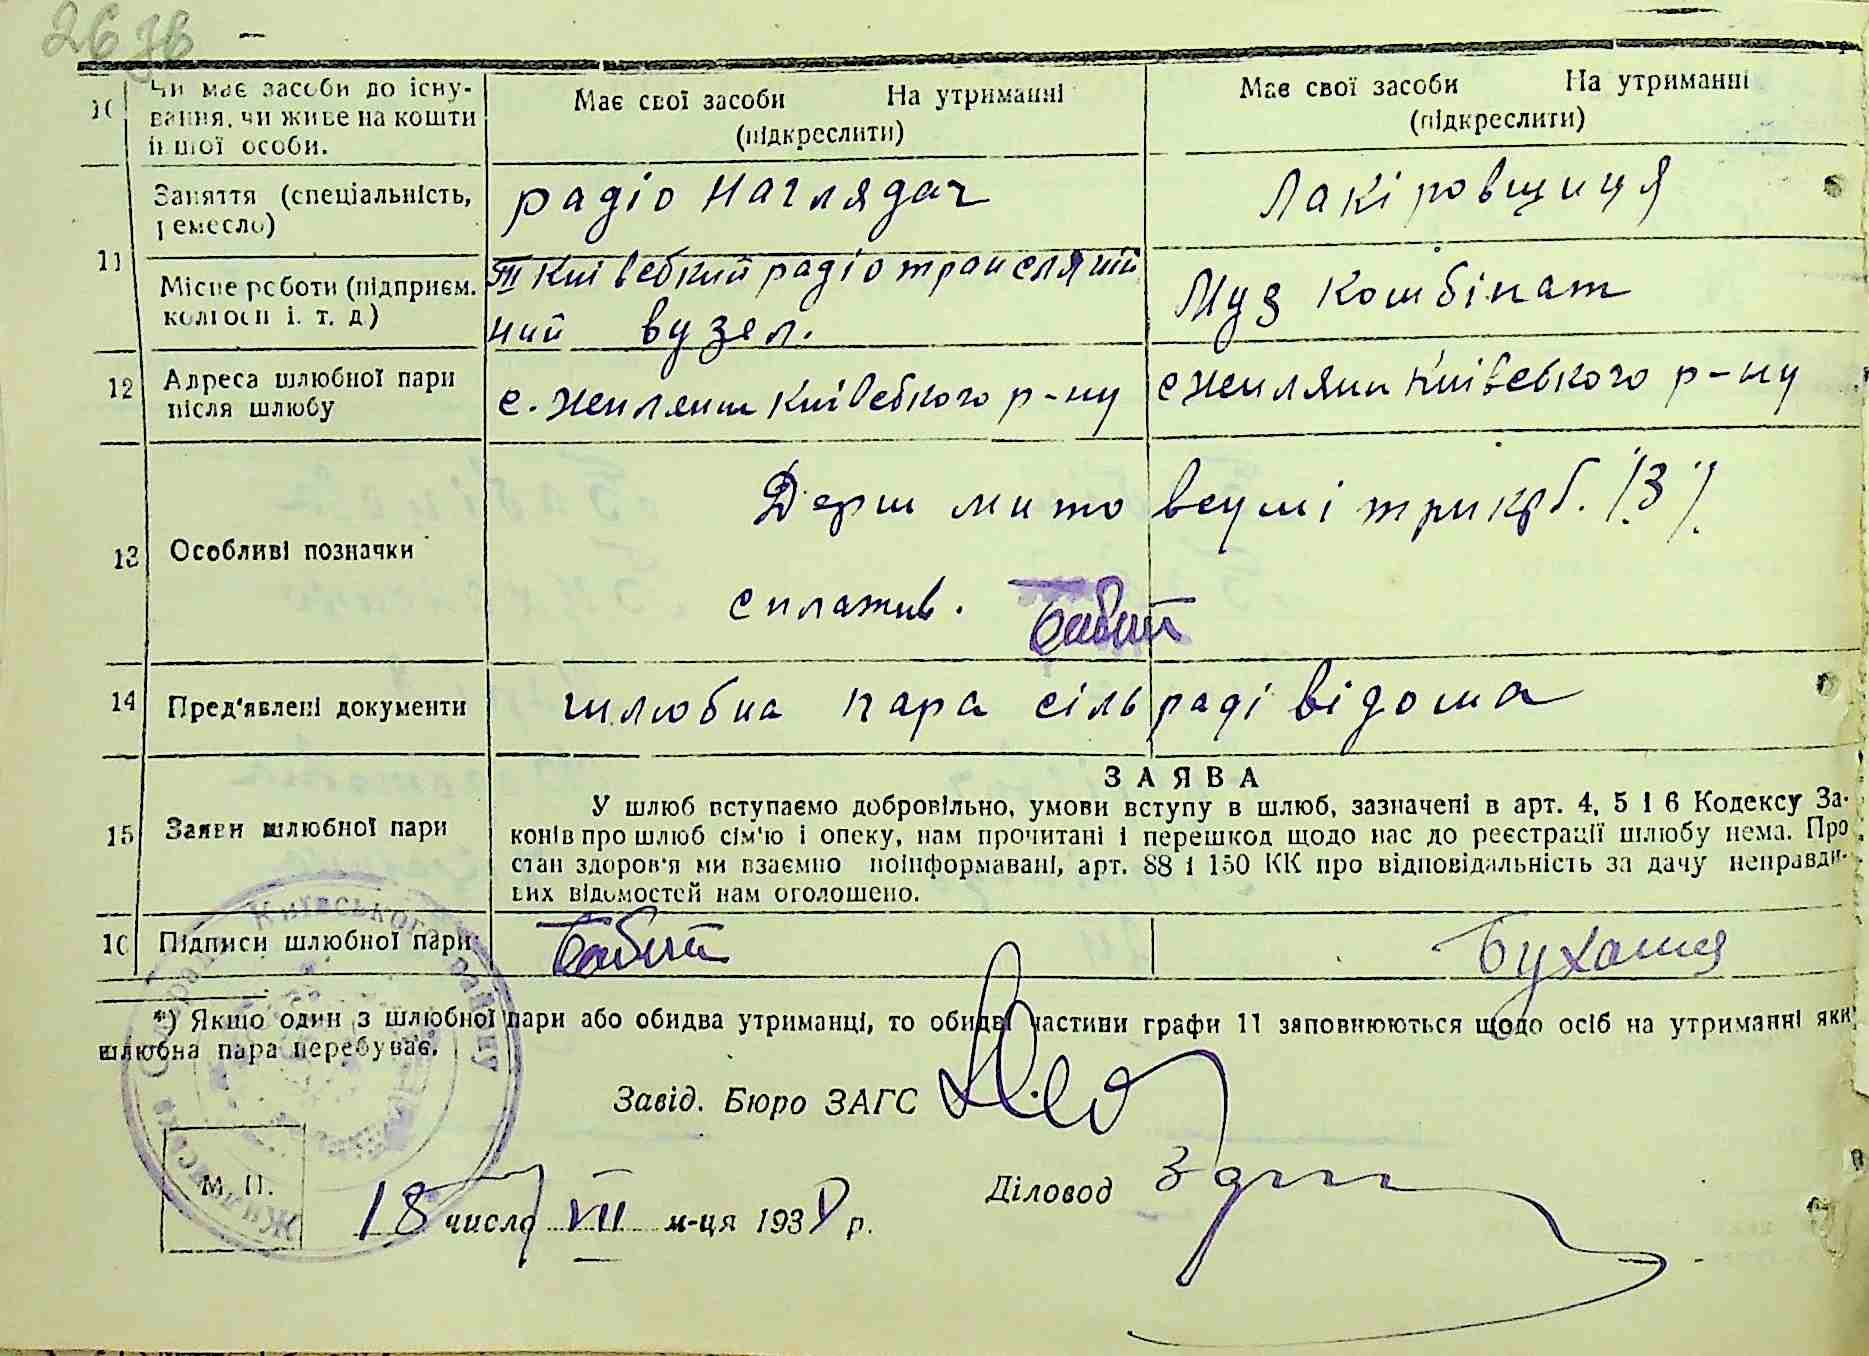 26 зв
10 Чи має засоби до існу-
вання, чи живе на кошти
іншої особи.
Має свої засоби На утриманні
(підкреслити)
Має свої засоби На утриманні
(підкреслити)
11 Заняття (спеціальність,
ремесло)
радіо наглядач
Лакіровщиця
Місце роботи (підприєм.
колгосп і. т. д.)
III Київський радіо трансляцій
ний вузел.
Муз комбінат
12 Адреса шлюбної пари
після шлюбу
с. Жиляни Київського р-ну
с Жиляни Київського р-ну
13 Особливі позначки
Держ мито всумі три крб. /3/
сплатив. Бабий
14 Пред'явлені документи
шлюбна пара сільраді відома
15 Заяви шлюбної пари
ЗАЯВА
У шлюб вступаємо добровільно, умови вступу в шлюб, зазначені в арт. 4, 5 і 6 Кодексу За-
конів про шлюб сім'ю і опеку, нам прочитані і перешкод щодо нас до реєстрації шлюбу нема. Про
стан здоров'я ми взаємно поінформавані, арт. 88 і 150 КК про відповідальність за дачу неправди-
вих відомостей нам оголошено.
16 Підписи шлюбної пари
Бабий
*) Якщо один з шлюбної пари або обидва утриманці, то обидві частини графи 11 заповнюються щодо осіб на утриманні яких
шлюбна пара перебуває.
Завід. Бюро ЗАГС
Діловод
М. П.
18 число VII м-ця 193 р.
Київського району